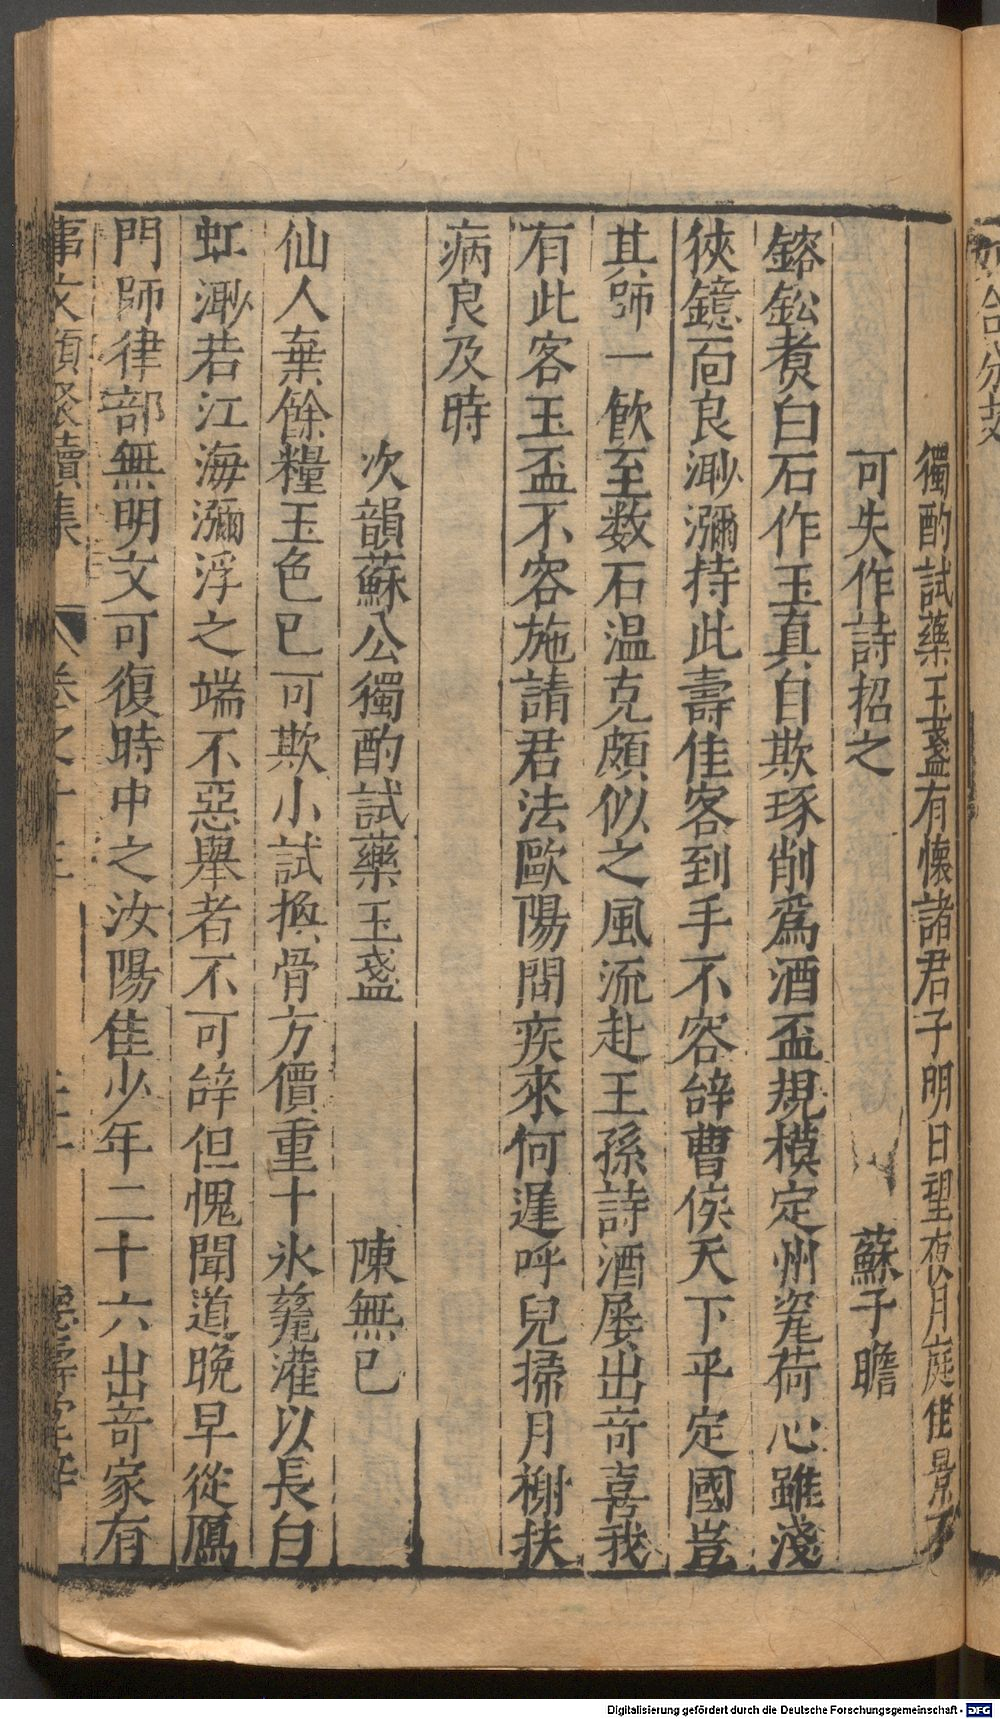 獨酌試藥玉盞有懷諸君子明日望夜月庭佳景不
可失作詩招之 蘇子瞻
鎔鈆煑白石作玉真自欺琢削爲酒盃規模定州窰荷心雖淺
狹鐿面良渺瀰持此壽佳客到手不容辝曹侯天下平定國豈
其師一飲至数石温克頗似之風流赴王孫詩酒屡出竒喜我
有此客玉盃不容施請君法歐陽問疾來何遲呼兒掃月榭扶
病良及時
次韻蘇公獨酌試藥玉盞 陳無已
仙人棄餘糧玉色已可欺小試換骨方價重十氷蕤灌以長白
虹渺若江海瀰浮之端不惡舉者不可辝但愧聞道晚早從鴈
門師律部無明文可復時中之汝陽佳少年二十六出竒家有
事文類聚續集 卷之十三
Digitalisierung gefördert durch die Deutsche Forschungsgemeinschaft - DFG